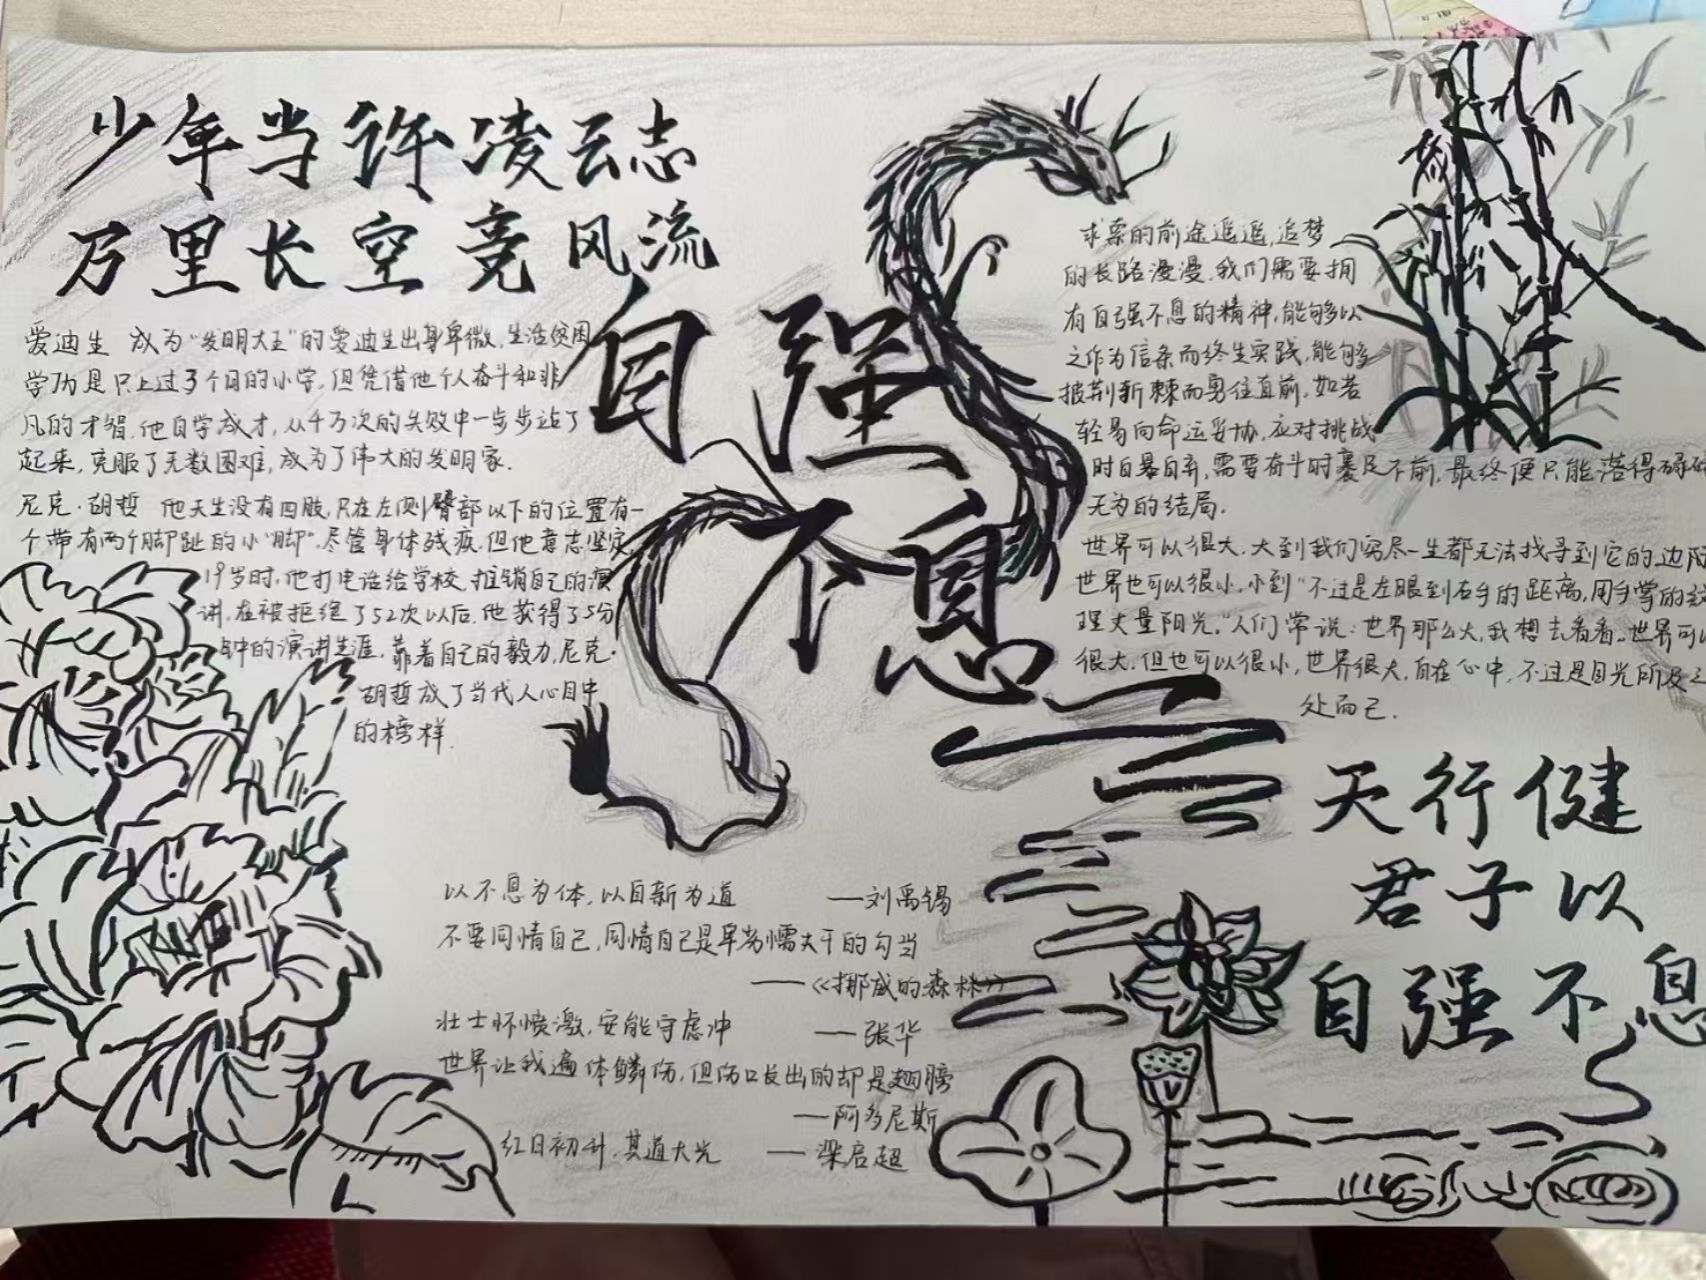 少年当许凌云志
万里长空竞风流
自强
不息
爱迪生 成为“发明大王”的爱迪生出身卑微,生活贫困
学历是只上过了3个月的小学,但凭借他个人奋斗和非
凡的才智,他自学成才,从千万次的失败中一步步站了
起来,克服了无数困难,成为了伟大的发明家.
尼克·胡哲 他天生没有四肢,只在左侧臀部以下的位置有一
个带有两个脚趾的小“脚”.尽管身体残疾,但他意志坚定,
19岁时,他打电话给学校,推销自己的演
讲,在被拒绝了52次以后,他获得了5分
钟的演讲生涯,靠着自己的毅力,尼克·
胡哲成了当代人心目中
的榜样.
求索的前途遥遥,追梦
的长路漫漫.我们需要拥
有自强不息的精神,能够以
之作为信条而终生实践,能够
披荆斩棘而勇往直前,如若
轻易向命运妥协,应对挑战
时自暴自弃,需要奋斗时裹足不前,最终便只能落得碌碌
无为的结局.
世界可以很大.大到我们穷尽一生都无法找寻到它的边际
世界也可以很小,小到“不过是左眼到右手的距离,用手掌的纹
理丈量阳光.”人们常说:世界那么大,我想去看看。世界可以
很大.但也可以很小,世界很大,自在心中,不过是目光所及之
处而已.
以不息为体,以日新为道 ——刘禹锡
不要同情自己,同情自己是卑劣懦夫干的勾当
——《挪威的森林》
壮士怀愤激,安能守虚冲 ——张华
世界让我遍体鳞伤,但伤口长出的却是翅膀
——阿多尼斯
红日初升,其道大光 ——梁启超
天行健
君子以
自强不息